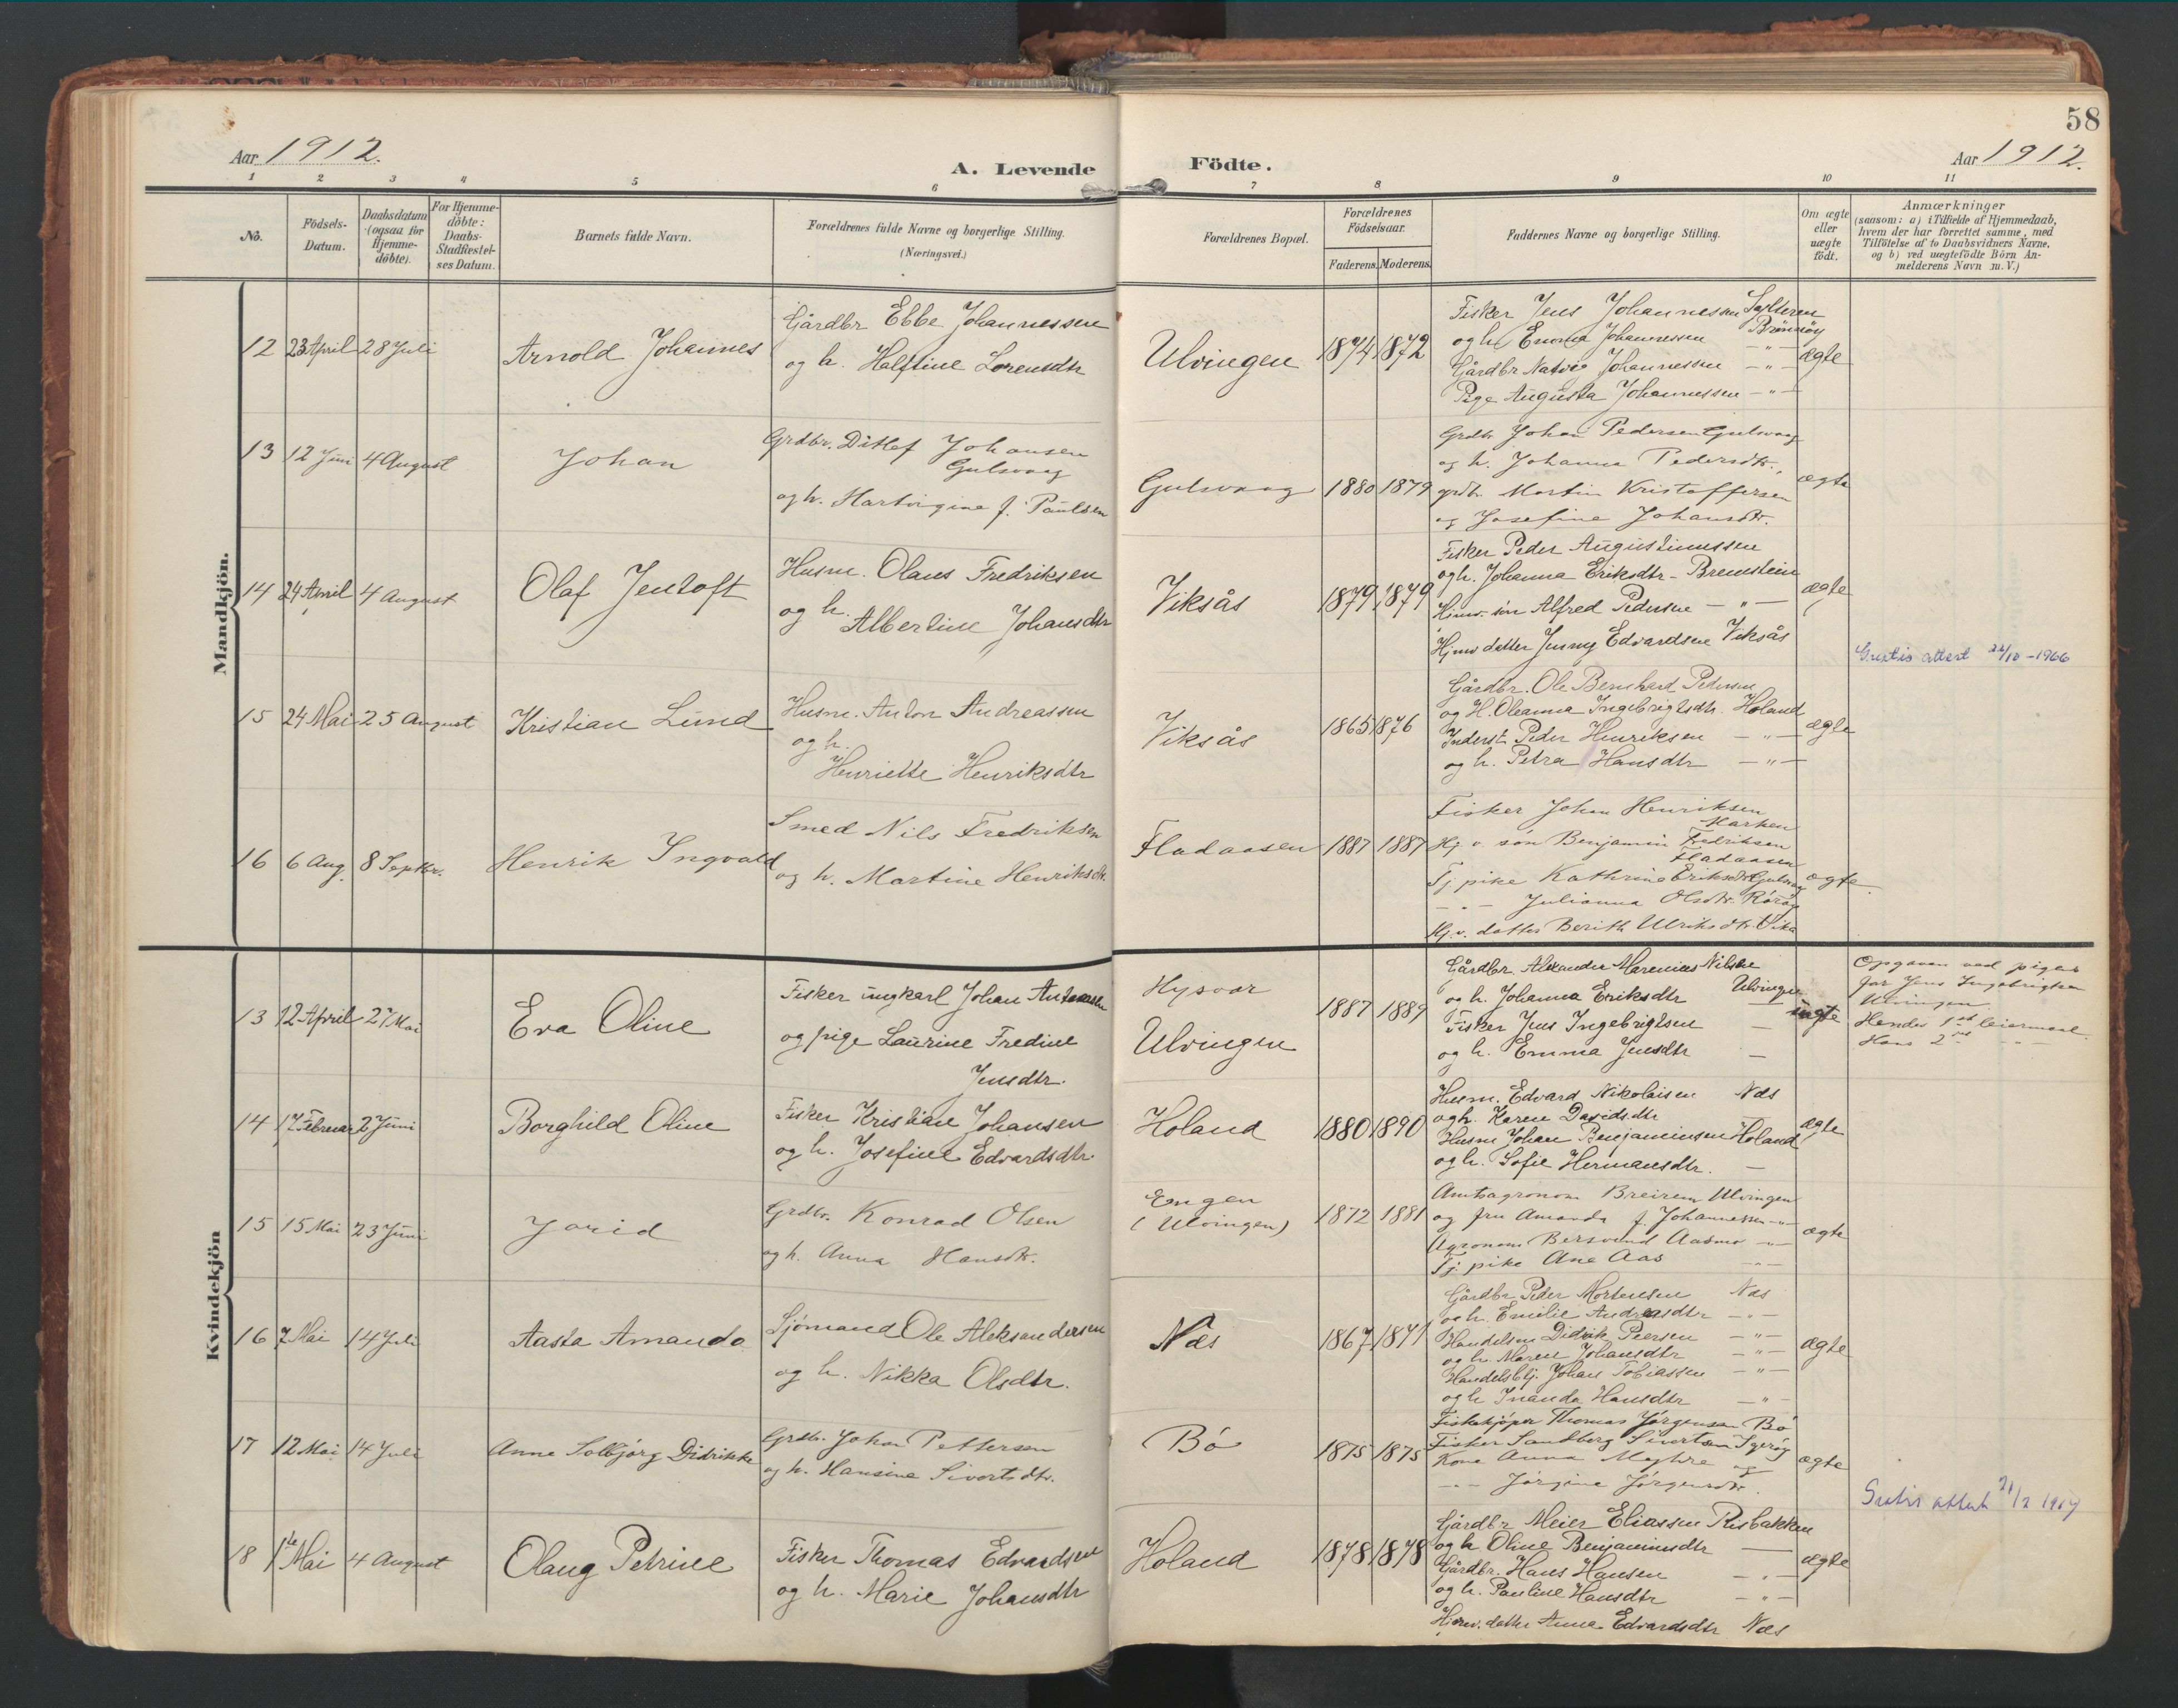 58
Aar 1912.
A. Levende Födte.
Aar 1912.
1 2 3 4 5 6 7 8 9 10 11
No.
Födsels-
Datum.
Daabsdatum
(ogsaa for
Hjemme-
döbte).
For Hjemme-
döbte:
Daabs-
Stadfæstel-
ses Datum.
Barnets fulde Navn.
Forældrenes fulde Navne og borgerlige Stilling.
(Næringsvei.)
Forældrenes Bopæl.
Forældrenes
Födselsaar.
Faderens. Moderens.
Faddernes Navne og borgerlige Stilling.
Om ægte
eller
uægte
födt.
Anmærkninger
(saasom: a) i Tilfælde af Hjemmedaab,
hvem der har forrettet samme, med
Tilföielse af to Daabsvidners Navne,
og b) ved uægtefödte Börn An-
melderens Navn m. V.)
Mandkjön.
12 23 April 28 Juli
Arnold Johannes
Gårdbr Ebbe Johannessen
og h. Halfline Lorensdtr
Ulvingen
1874 1872
Fisker Jens Johannessen Sylteren
Brönnöy
og h. Emma Johannessen — " —
Gårdbr Natvig Johannessen — " —
Pige Augusta Johannessen — " —
ægte
13 12 Juni 4 August
Johan
Grdbr. Ditlef Johansen
Gulsvaag
og h. Hartvigine f. Paulsen
Gulsvaag
1880 1879
Grdbr Johan Pedersen Gulsvaag
og h. Johanna Pedersdtr.
grdb. Martin Kristoffersen
og Josefine Johansdtr.
ægte
14 24 April 4 August
Olaf Jentoft
Husm. Olaus Fredriksen
og h.
Albertine Johansdtr
Viksås
1879 1879
Fisker Peder Augustinussen
og h. Johanna Eriksdtr - Bremstein
Hjmv. sön Alfred Pedersen — " —
Hjmv datter Jenny Edvardsen Viksås
ægte
Gratis attest 24/10 - 1966
15 24 Mai 25 August
Kristian Lund
Husm. Anton Andreassen
og h.
Henriette Henriksdtr
Viksås
1865 1876
Gårdbr. Ole Bernhard Pedersen
og H. Oleanna Ingebrigtsdtr. Holand
Inderst Peder Henriksen — " —
og h. Petra Hansdtr — " —
ægte
16 6 Aug. 8 Septbr.
Henrik Ingvald
Smed Nils Fredriksen
og h. Martine Henriksdtr.
Fladaasen
1887 1887
Fisker Johan Henriksen
Marken
Hj. v. sön Benjamin Fredriksen
Fladaasen
Tj. pike Kathrine Eriksdtr Gulsvaag
— " — Julianna Olsdtr. Rörøy
Hj. v. datter Berith Ulriksdtr. Vika
ægte.
Kvindekjön
13 12 April 27 Mai
Eva Oline
Fisker ungkarl Johan Antonsen
og pige Laurine Fredine
Jensdtr.
Hysvær
Ulvingen
1887 1889
Gårdbr Alexander Marenius Nilsen
og h. Johanna Eriksdtr Ulvingen
Fisker Jens Ingebrigtsen —
og h. Emma Jensdtr —
uægte
Opgaven ved pigens
far Jens Ingebrigtsen
Ulvingen
Hendes 1ste leiermaal
Hans 2det — " —
14 17 Februar 2 Juni
Borghild Oline
Fisker Kristian Johansen
og h. Josefine Edvardsdtr.
Holand
1880 1890
Husm. Edvard Nikolaisen Næs
og h. Karen Davidsdtr
Husm Johan Benjaminsen Holand
og h. Sofie Hermansdtr. —
ægte
15 15 Mai 23 Juni
Jorid
Grdbr. Konrad Olsen
og h. Anna Hansdtr.
Engen
(Ulvingen)
1872 1881
Amtsagronom Breirem Ulvingen
og fru Amanda f. Johannessen — " —
Agronom Bersvend Aasmo — " —
Tj. pike Ane Aas — " —
ægte
16 7 Mai 14 Juli
Aasta Amanda
Sjömand Ole Aleksandersen
og h. Nikka Olsdtr.
Næs
1867 1871
Gårdbr Peder Mortensen Næs
og h. Emilie Andreasdtr — " —
Handelsm Didrik Peersen — " —
og h. Maren Johansdtr — " —
Handelsblj. Johan Tobiassen — " —
og h Inanda Hansdtr — " —
ægte
17 12 Mai 14 Juli
Anne Solbjörg Didrikke
Grdbr. Johan Pettersen
og h. Hansine Sivertsdtr.
Bö
1875 1875
Fiskekjöper Thomas Jörgensen Bö
Fisker Sandberg Sivertsen
Kone Anna og
— " — Jörgine Jörgensdtr.
ægte
18 1ste Mai 4 August
Olaug Petrine
Fisker Thomas Edvardsen
og h. Marie Johansdtr
Holand
1878 1878
Gårdbr Meier Eliassen Risbakken
og h. Oline Benjaminsdtr —
Gårdbr. Hans Hansen — " —
og h. Pauline Hansdtr — " —
Hjmv. datter Anna Edvardsdtr Næs
ægte
Gratis attest 21/2 1967